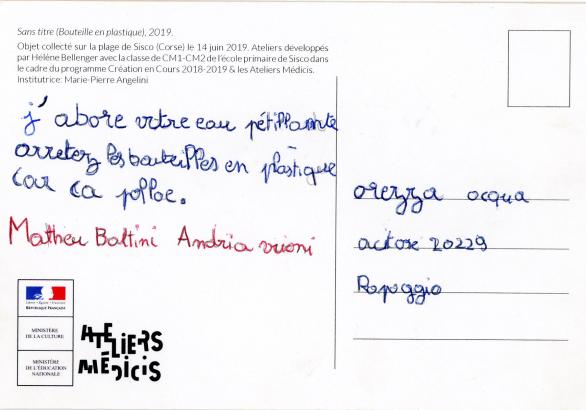 Sans titre (Bouteille en plastique), 2019.
Objet collecté sur la plage de Sisco (Corse) le 14 juin 2019. Ateliers développés
par Hélène Bellenger avec la classe de CM1-CM2 de l'école primaire de Sisco dans
le cadre du programme Création en Cours 2018-2019 & les Ateliers Médicis.
Institutrice: Marie-Pierre Angelini
j'abore votre eau pétillante
arretez les bouteilles en plastique
car ca polloe.
Mathieu Baltini Andria vrioni
orezza acqua
actose 20229
Rapaggio
Liberté • Égalité • Fraternité
RÉPUBLIQUE FRANÇAISE
MINISTÈRE
DE LA CULTURE
MINISTÈRE
DE L'ÉDUCATION
NATIONALE
ATELIERS
MÉDICIS